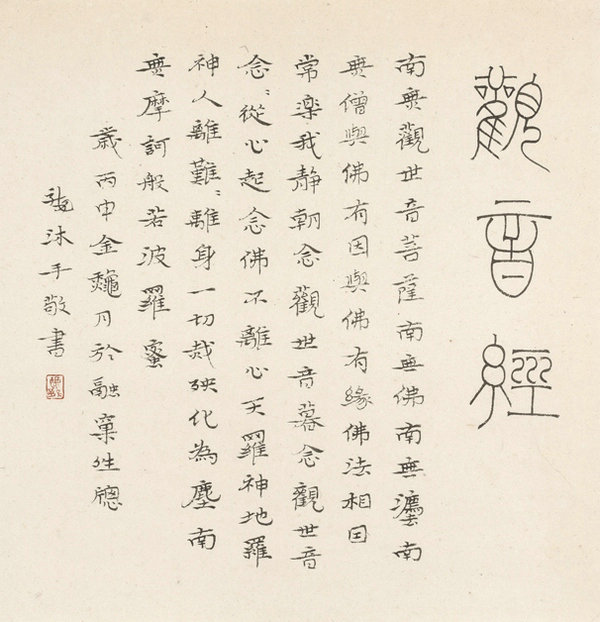 觀音經
南無觀世音菩薩南無佛南無灋南
無僧與佛有因與佛有緣佛法相因
常楽我靜朝念觀世音暮念觀世音
念〻從心起念佛不離心天羅神地羅
神人離難〻離身一切烖殃化為塵南
無摩訶般若波羅蜜
歲丙申金龝月於融牕
沐手敬書